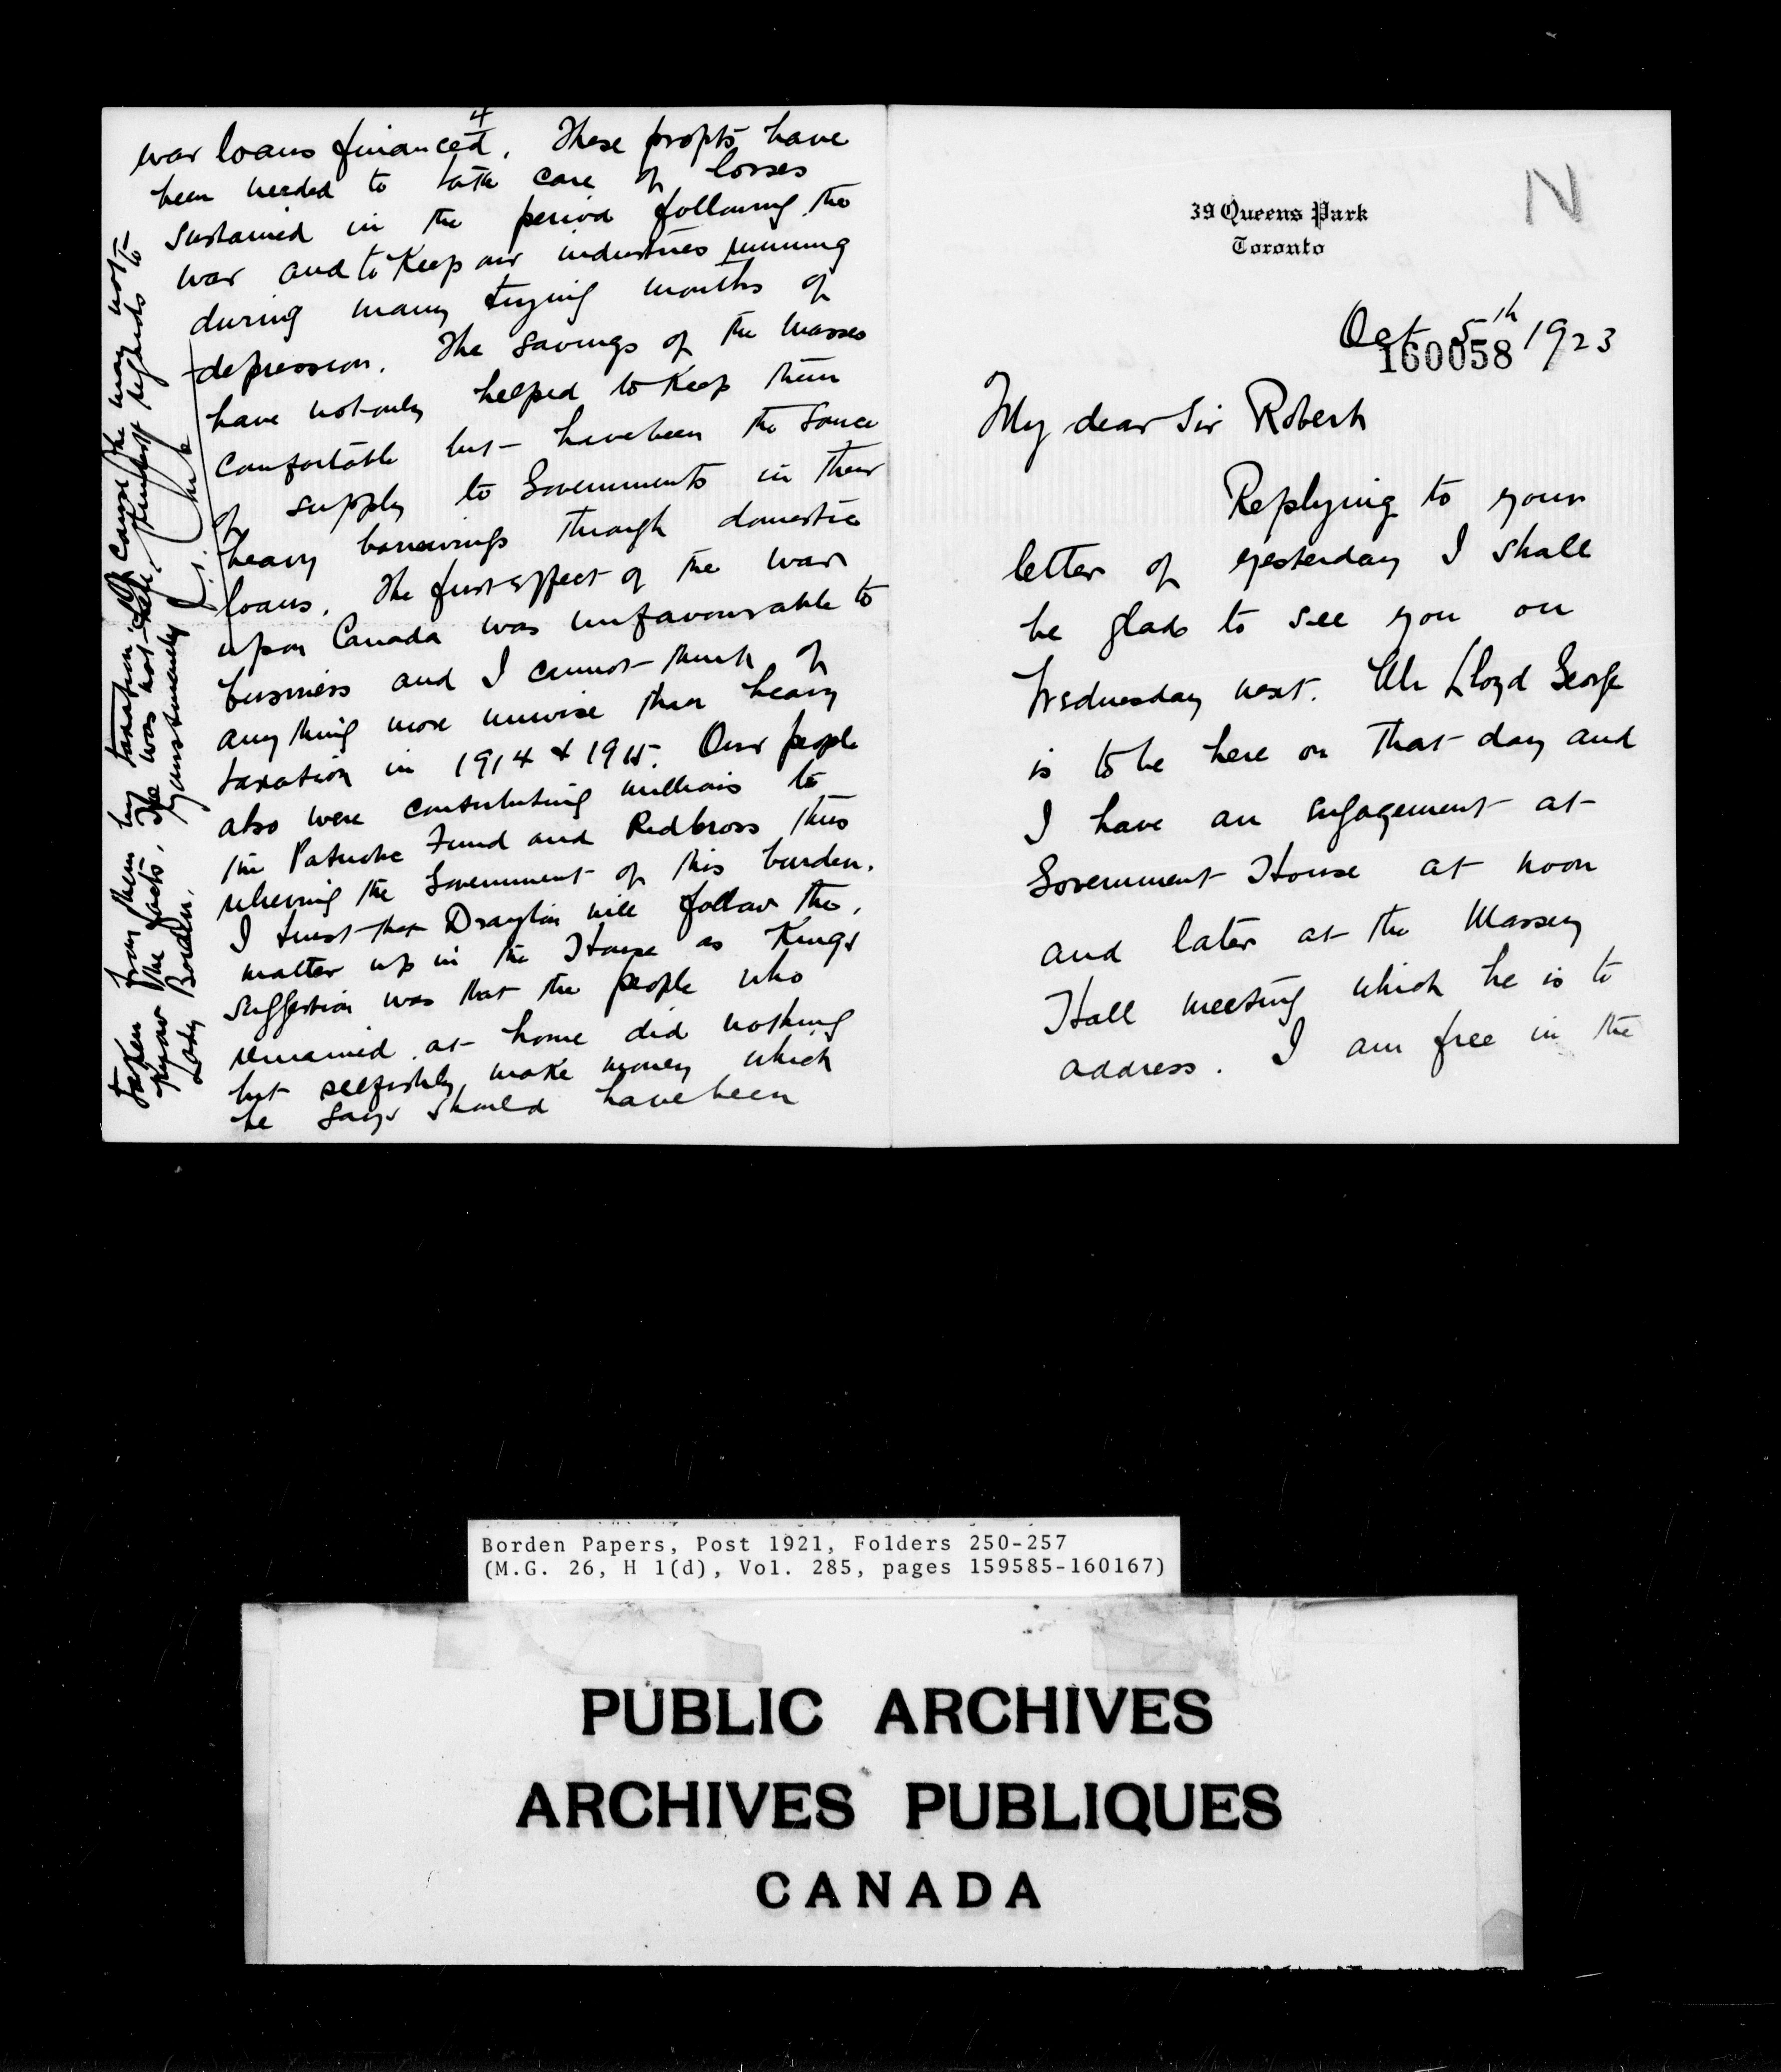 4
war loans financed. These profits have
been needed to take care of losses
sustained in the period following the
war and to keep our industries running
during many trying months of
depression. The savings of the masses
have not only helped to keep them
comfortable but have been the source
of supply to Governments in their
heavy borrowings through domestic
loans. The first effect of the war
upon Canada was unfavourable to
business and I cannot think of
any thing more unwise than heavy
taxation in 1914 & 1915. Our people
also were contributing millions to
the Patriotic Fund and Red Cross thus
relieving the Government of this burden.
I trust that Drayton will follow the
matter up in the House as Kings
suggestion was that the people who
remained at home did nothing
but selfishly make money which
he says should have been
taken from them by taxation. Of course he may not
know the facts. He was not here. Kindest regards to
Lady Borden.
Yours sincerely
39 Queens Park
Toronto
N
Oct 5th 1923
160058
My dear Sir Robert
Replying to your
letter of yesterday I shall
be glad to see you on
Wednesday next. Mr Lloyd George
is to be here on that day and
I have an engagement at
Government House at noon
and later at the Massey
Hall meeting which he is to
address. I am free in the
Borden Papers, Post 1921, Folders 250-257
(M.G. 26, H 1(d), Vol. 285, pages 159585-160167)
PUBLIC ARCHIVES
ARCHIVES PUBLIQUES
CANADA